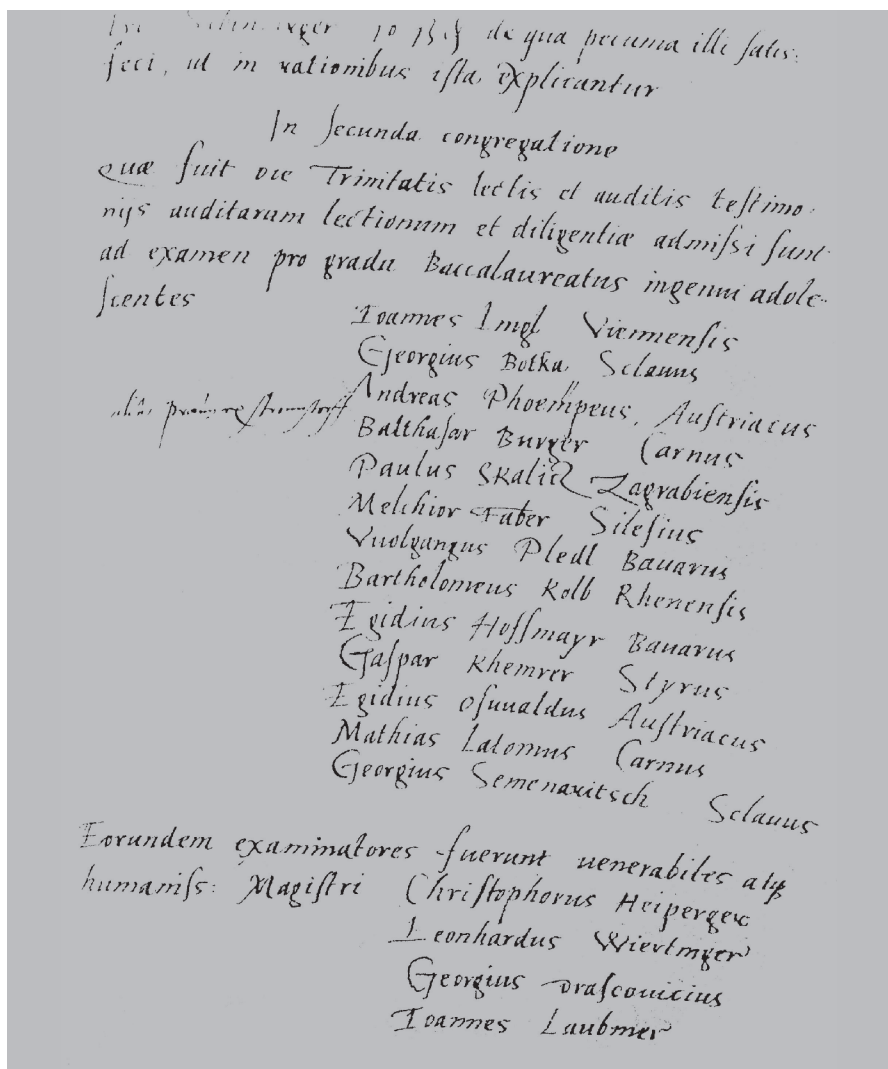 de qua pecunia illi satis:
feci, ut in rationibus ista explicantur
In secunda congregatione
quæ fuit die Trinitatis lectis et auditis testimo:
nijs auditarum lectionum et diligentiæ admissi sunt
ad examen pro gradu Baccalaureatus ingenui adole-
scentes
Ioannes Imgl Viennensis
Georgius Botka Sclauus
Andreas Phoempeus, Austriacus
Balthasar Burger Carnus
Paulus Skalich Zagrabiensis
Melchior Faber Silesius
Vuolgangus Pledl Bauarus
Bartholomeus Kolb Rhenensis
Egidius Hoffmayr Bauarus
Gaspar Khemrer Styrus
Egidius Osuualdus Austriacus
Mathias Latomus Carnus
Georgius Semenauitsch Sclauus
Eorundem examinatores fuerunt uenerabiles atq
humaniss: Magistri Christophorus Heiperger
Leonhardus Wiertmger
Georgius Drascouicius
Ioannes Laubmer